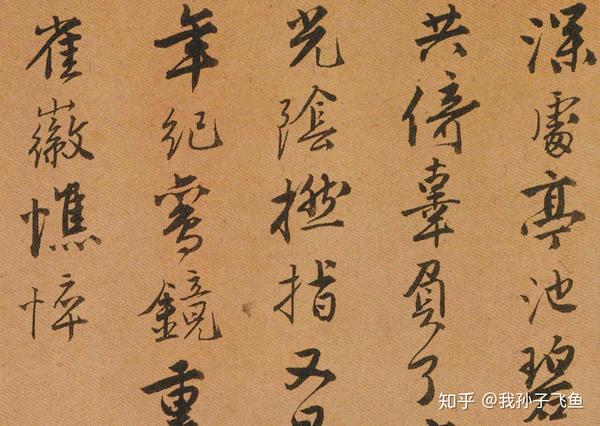 深處亭池碧
共倚辜負了
光陰撚指又
年紀鸞鏡重
崔徽憔悴
知乎 @我孙子飞鱼